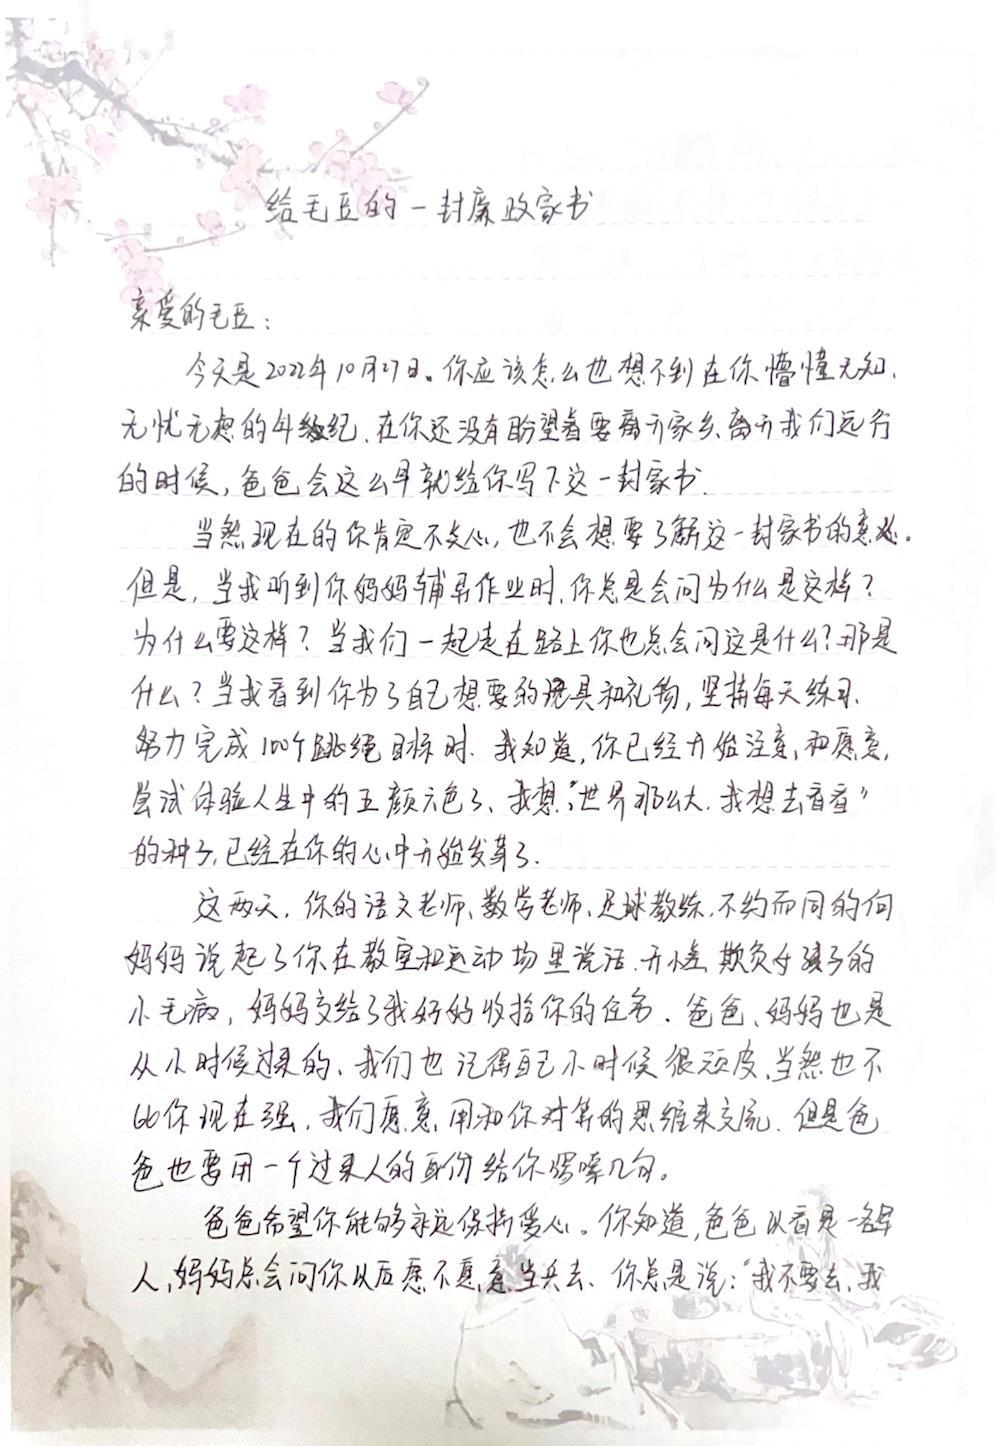 给毛豆的一封廉政家书
亲爱的毛豆：
今天是2022年10月27日。你应该怎么也想不到在你懵懂无知、
无忧无虑的年纪、在你还没有盼望着要离开家乡、离开我们远行
的时候，爸爸会这么早就给你写下这一封家书。
当然现在的你肯定不关心，也不会想要了解这一封家书的意义。
但是，当我听到你妈妈辅导作业时，你总是会问为什么是这样？
为什么要这样？当我们一起走在路上你也总会问这是什么？那是
什么？当我看到你为了自己想要的玩具和礼物，坚持每天练习、
努力完成100个跳绳目标时、我知道，你已经开始注意，和愿意，
尝试体验人生中的五颜六色了、我想，“世界那么大，我想去看看”
的种子，已经在你的心中开始发芽了。
这两天，你的语文老师、数学老师、足球教练，不约而同的向
妈妈说起了你在教室和运动场里说话、开小差、欺负女孩子的
小毛病，妈妈交给了我好好收拾你的任务、爸爸、妈妈也是
从小时候过来的、我们也记得自己小时候很顽皮、当然也不
比你现在强，我们愿意用和你对等的思维来交流、但是爸
爸也要用一个过来人的身份给你啰嗦几句。
爸爸希望你能够永远保持爱心。你知道，爸爸以前是一名军
人，妈妈总会问你以后愿不愿意当兵去、你总是说：“我不要去，我